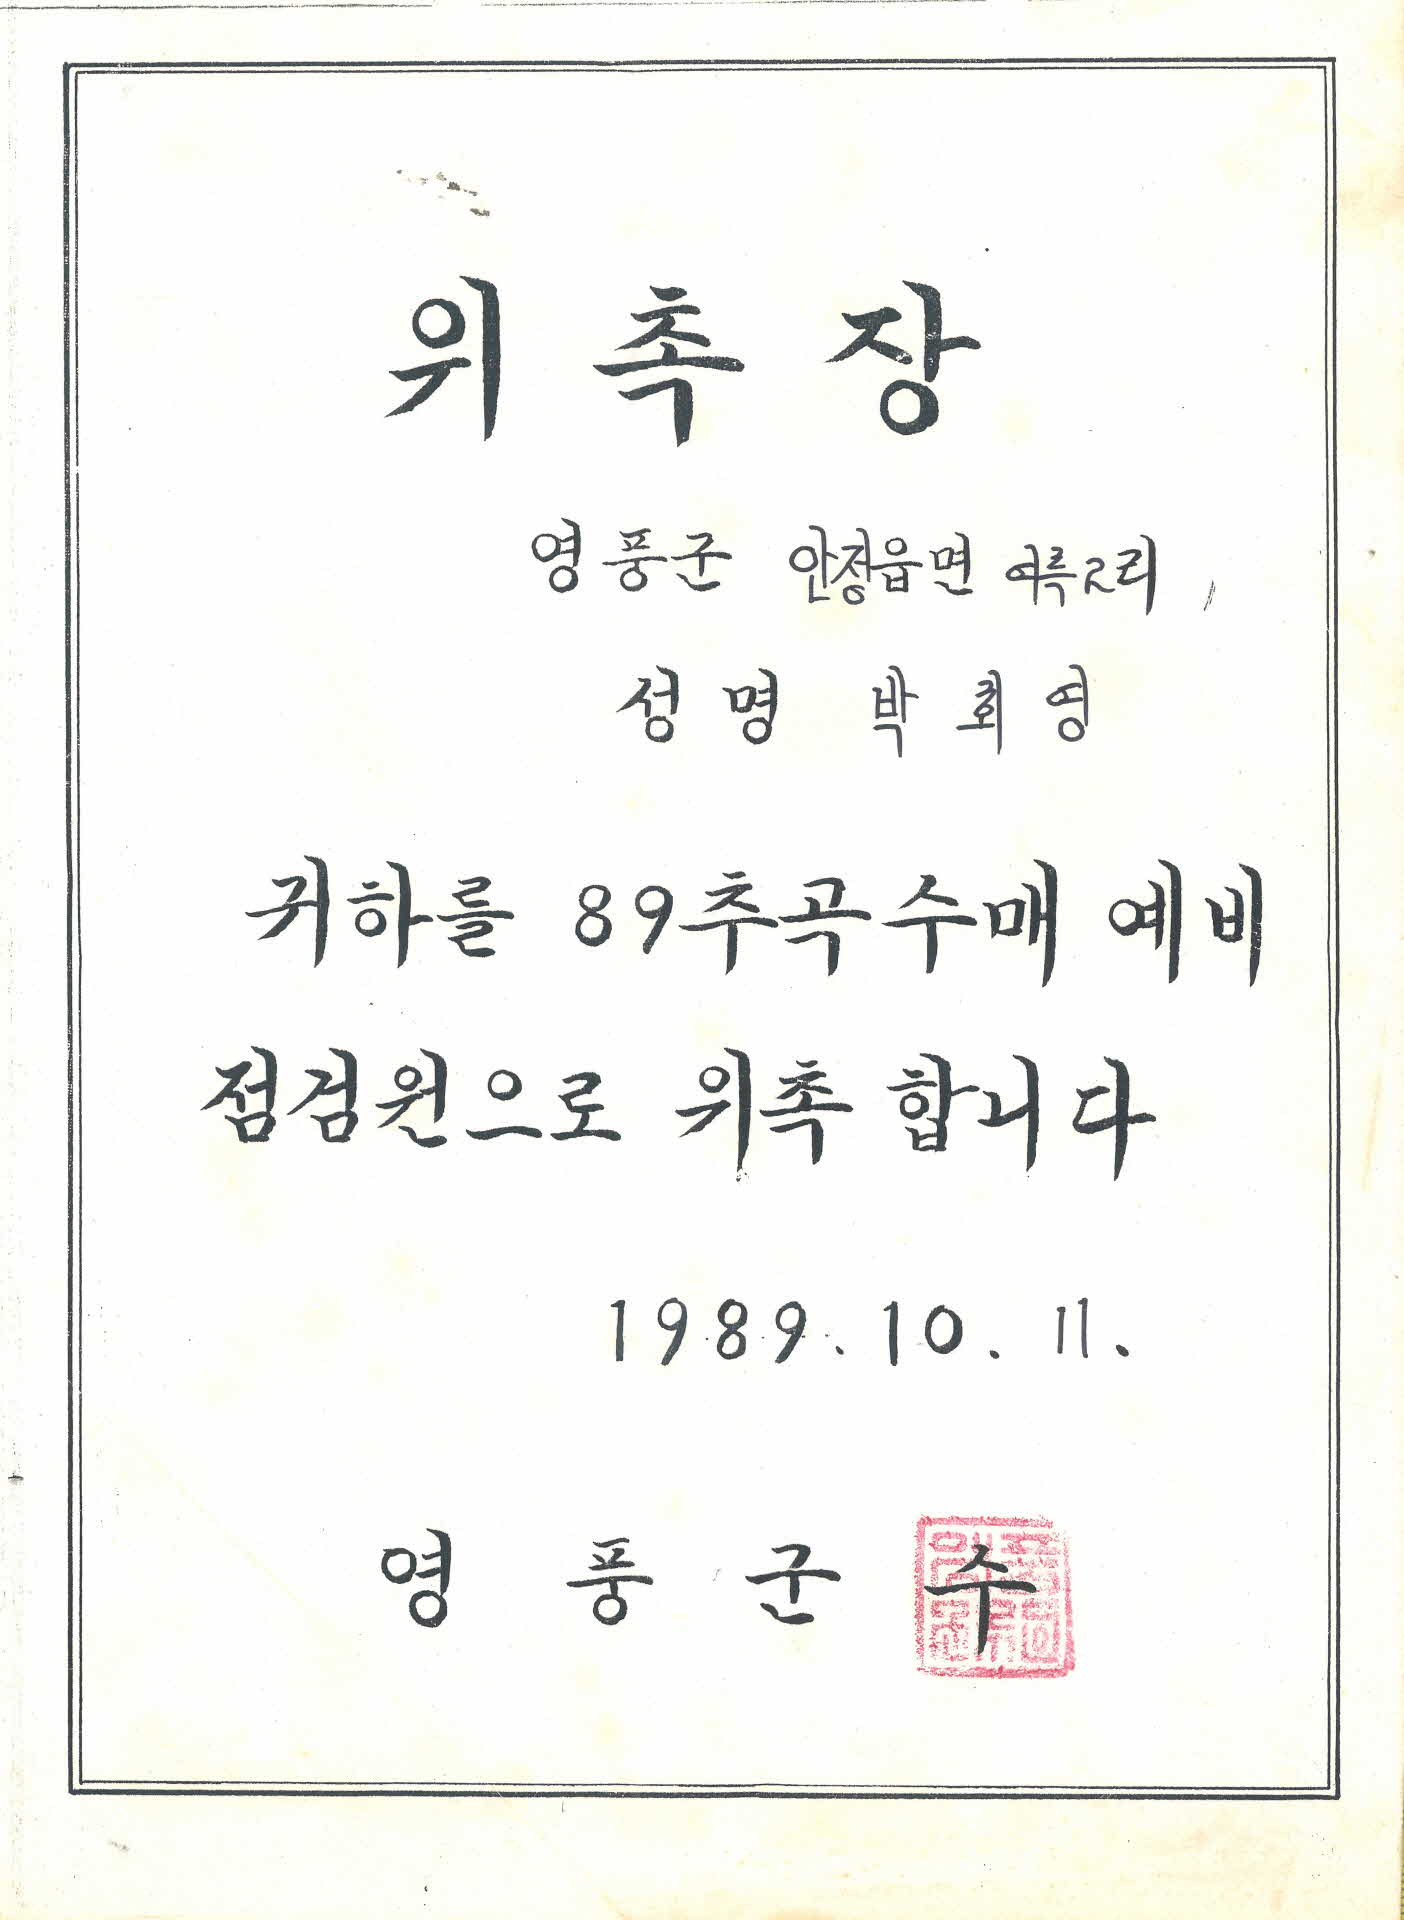 위촉장
영풍군 안정읍면 여륵2리
성명 박희영
귀하를 89추곡수매 예비
점검원으로 위촉 합니다
1989. 10. 11.
영풍군수